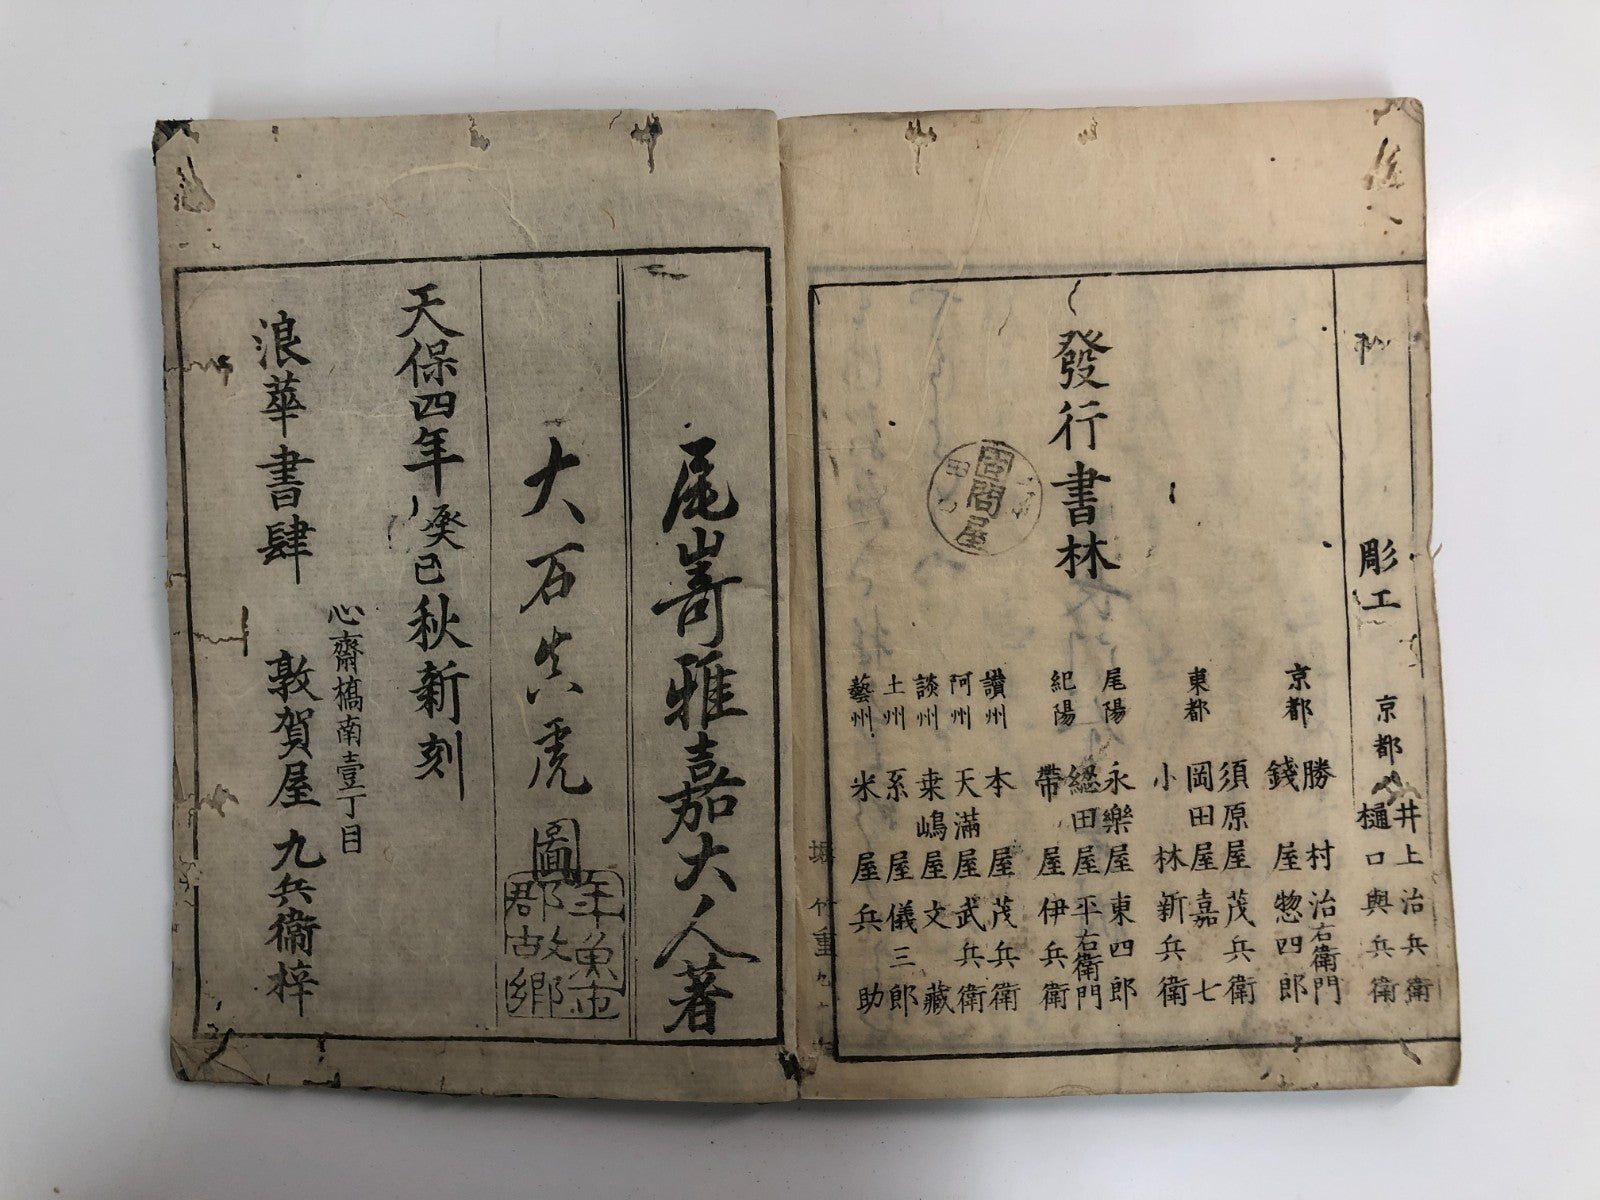 彫工
京都
井上治兵衛
樋口與兵衛
發行書林
京都
勝村治右衛門
錢屋惣四郎
東都
須原屋茂兵衛
岡田屋嘉七
小林新兵衛
尾陽
永樂屋東四郎
紀陽
綛田屋平右衛門
帶屋伊兵衛
讃州
本屋茂兵衛
阿州
天滿屋武兵衛
談州
桒嶋屋文藏
土州
系屋儀三郎
藝州
米屋兵助
尾嵜雅嘉大人著
大石真虎圖
年魚市
郡故郷
天保四年癸巳秋新刻
心齋橋南壹丁目
浪華書肆
敦賀屋九兵衞梓